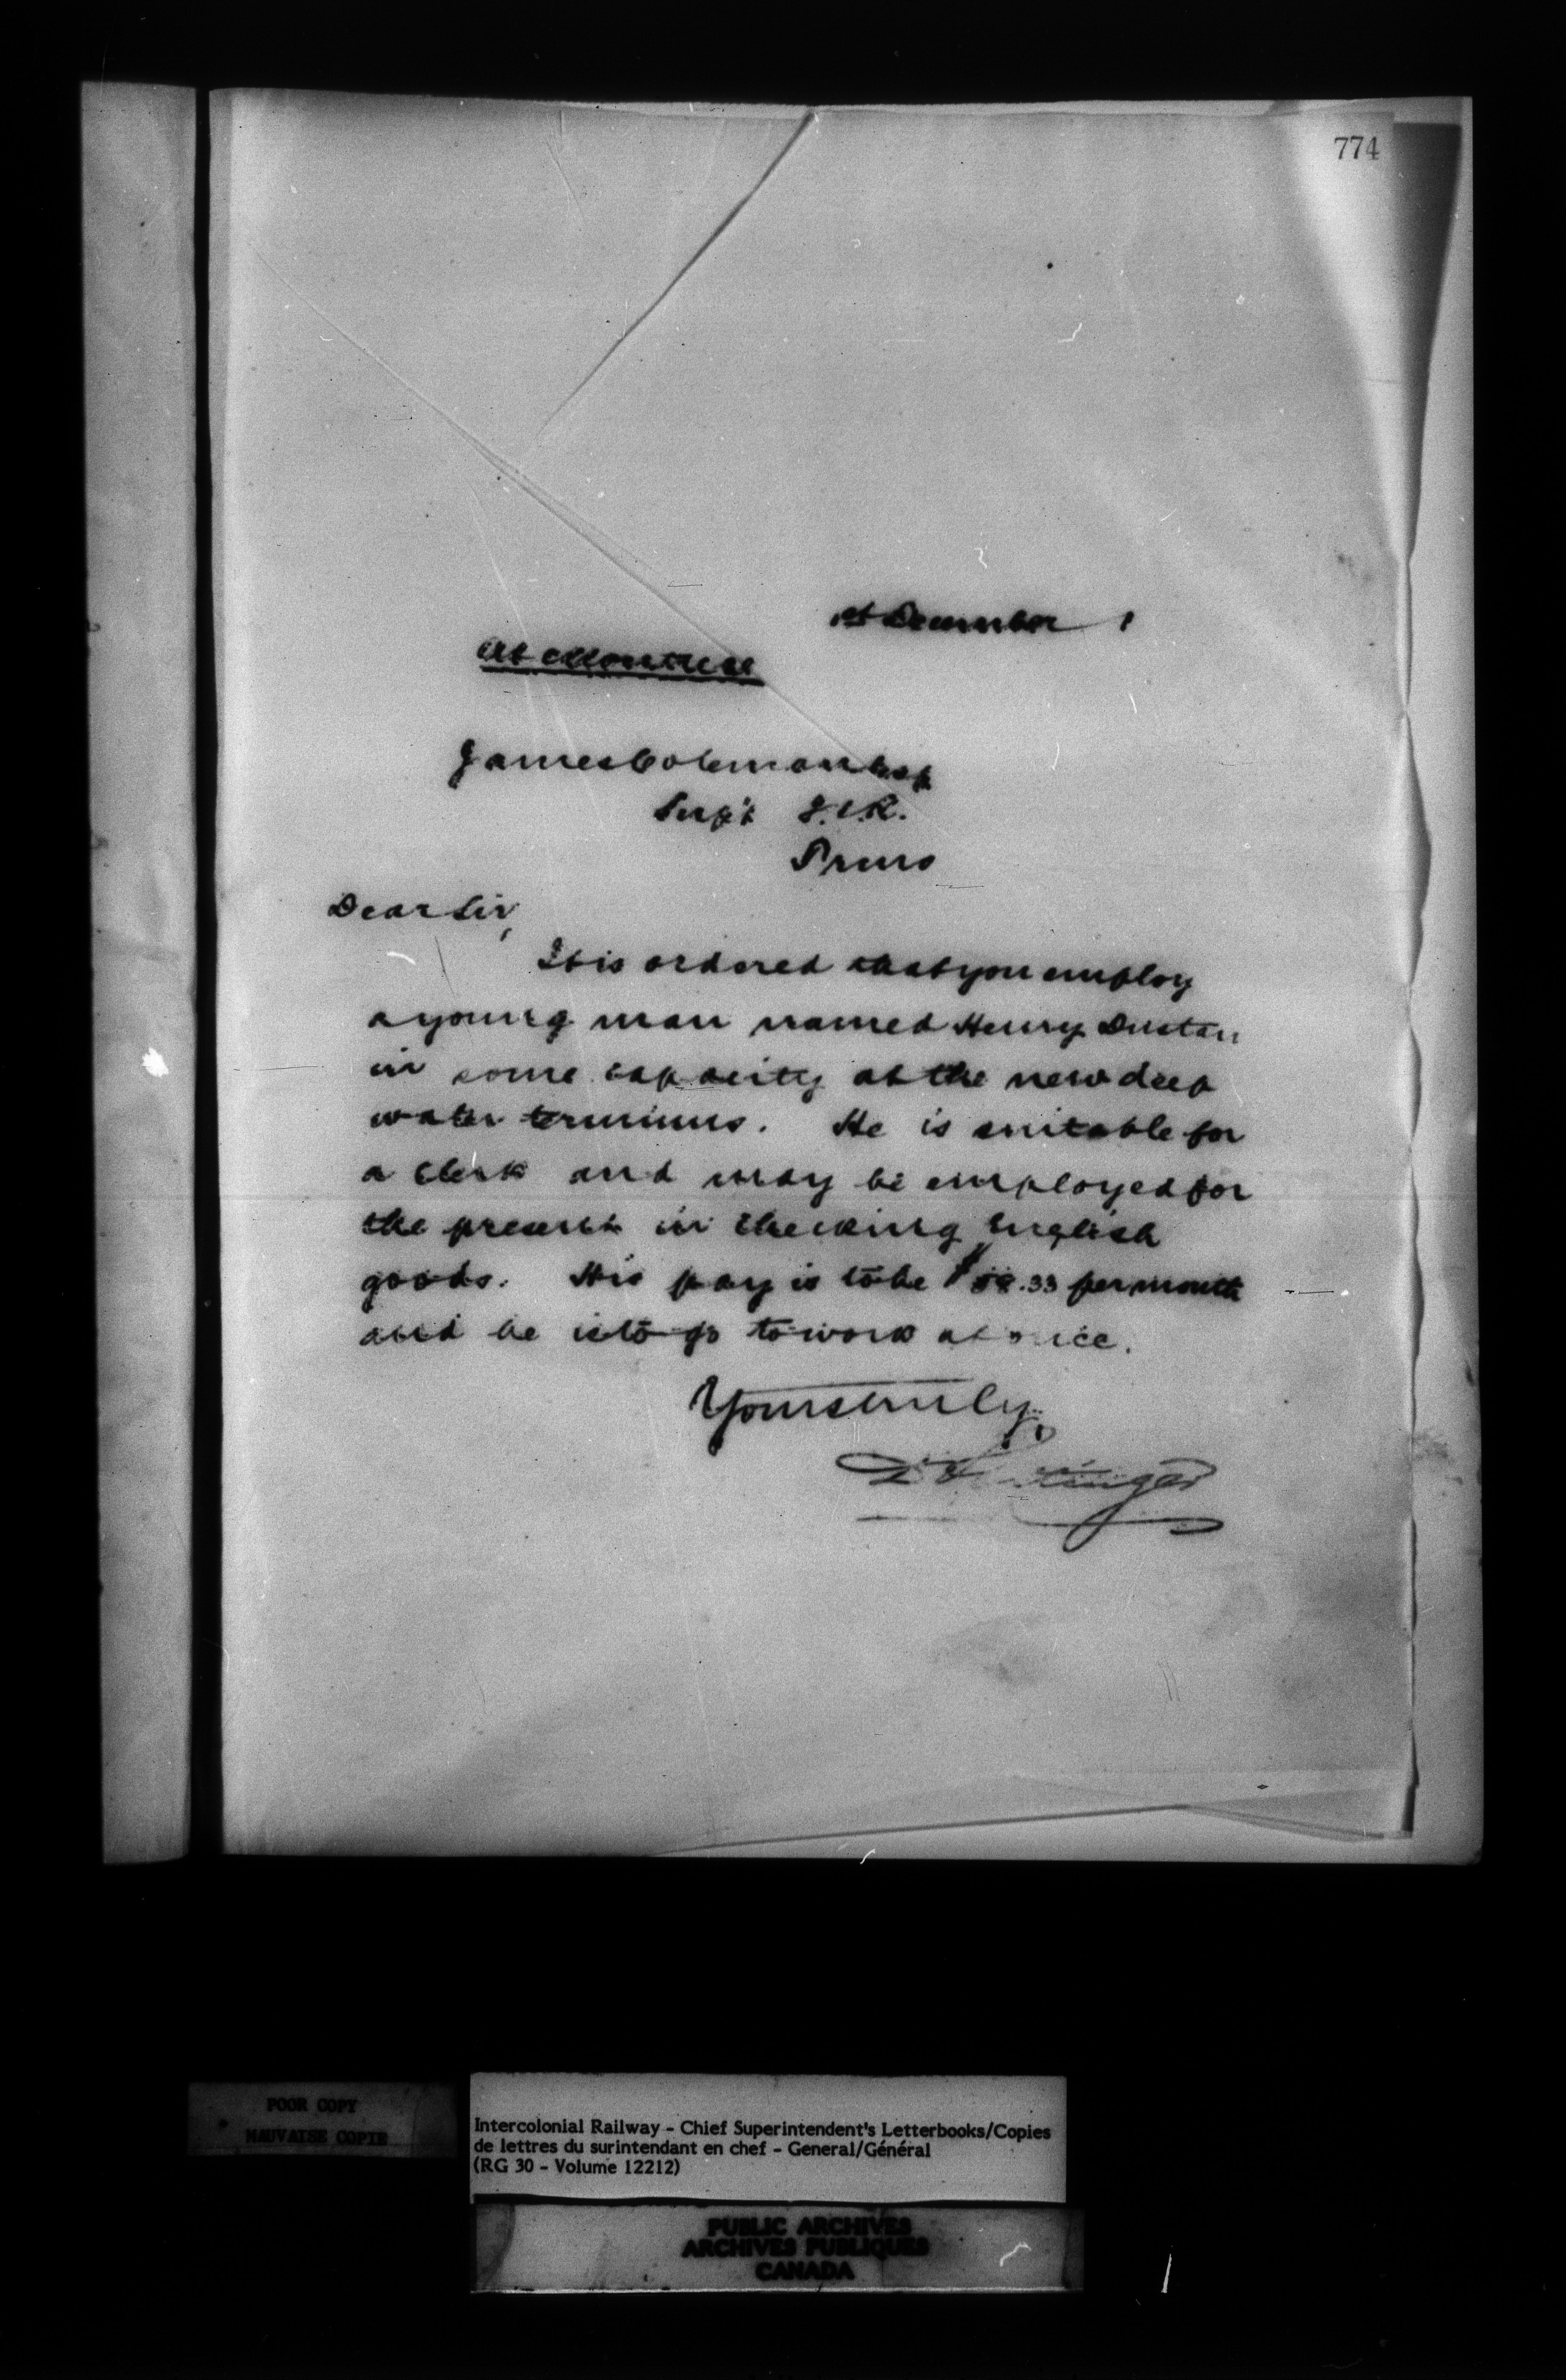 774
1st December 1
At Montreal
James Coleman Esq
Supt I.C.R.
Truro
Dear Sir,
It is ordered that you employ
a young man named Henry Dustan
in some capacity at the new deep
water terminus. He is suitable for
a clerk and may be employed for
the present in checking English
goods. His pay is to be $58.33 per month
and he is to go to work at once.
Yours truly,
D Pottinger
POOR COPY
MAUVAISE COPIE
Intercolonial Railway - Chief Superintendent's Letterbooks/Copies
de lettres du surintendant en chef - General/Général
(RG 30 - Volume 12212)
PUBLIC ARCHIVES
ARCHIVES PUBLIQUES
CANADA